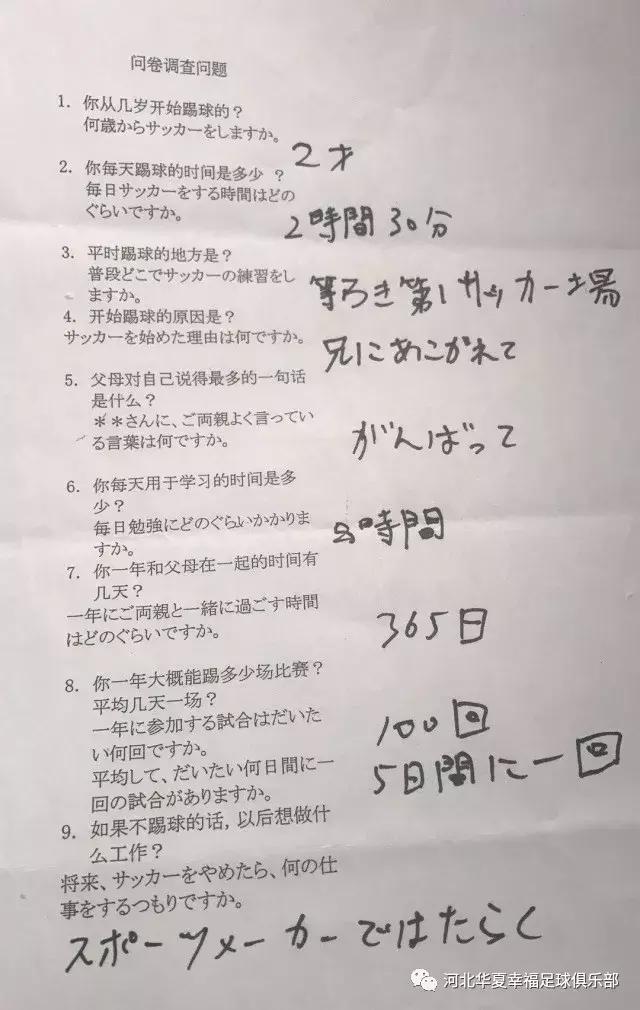 问卷调查问题
1. 你从几岁开始踢球的?
何歳からサッカーをしますか。
2才
2. 你每天踢球的时间是多少 ?
毎日サッカーをする時間はどの
ぐらいですか。
2時間30分
3. 平时踢球的地方是?
普段どこでサッカーの練習をし
ますか。
等ろき第1サッカー場
4. 开始踢球的原因是?
サッカーを始めた理由は何ですか。
兄にあこがれて
5. 父母对自己说得最多的一句话
是什么?
＊＊さんに、ご両親よく言ってい
る言葉は何ですか。
がんばって
6. 你每天用于学习的时间是多
少?
毎日勉強にどのぐらいかかりま
すか。
8時間
7. 你一年和父母在一起的时间有
几天?
一年にご両親と一緒に過ごす時間
はどのぐらいですか。
365日
8. 你一年大概能踢多少场比赛?
平均几天一场?
一年に参加する試合はだいた
い何回ですか。
平均して、だいたい何日間に一
回の試合がありますか。
100回
5日間に一回
9. 如果不踢球的话, 以后想做什
么工作?
将来、サッカーをやめたら、何の仕
事をするつもりですか。
スポーツメーカーではたらく
河北华夏幸福足球俱乐部